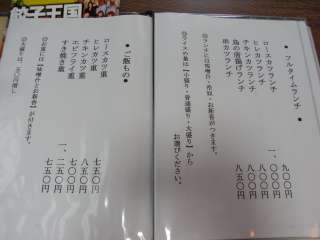 餃子王国
● フルタイムランチ ●
ロースカツランチ　九〇〇円
ヒレカツランチ　一、〇〇〇円
チキンカツランチ　九〇〇円
鳥の唐揚げランチ　八五〇円
串カツランチ
◎ランチには味噌汁・小鉢・お新香がつきます。
◎ライスの量は【小盛り・普通盛り・大盛り】から
お選びください。
● ご飯もの ●
ロースカツ重　七五〇円
ヒレカツ重　八五〇円
チキンカツ重　七〇〇円
エビフライ重　一、二五〇円
すき焼き重　七五〇円
◎お重には【味噌汁とお新香】が付きます。